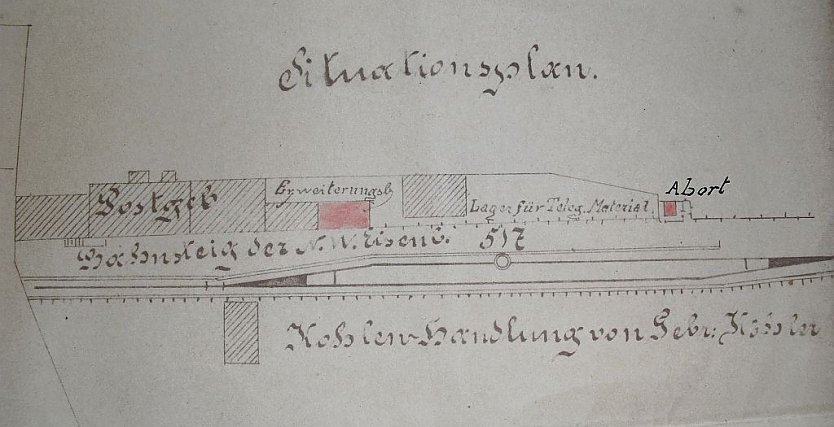 Situationsplan.
Erweiterungsb.
Postgeb
Lager für Teleg. Material.
Abort
Bahnsteig der N. W. Eisenb. 517
Kohlen-Handlung von Gebr. Köhler